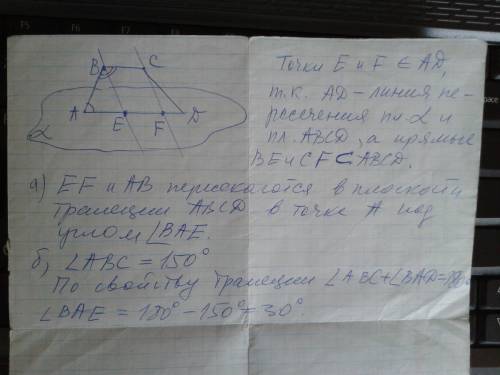 B
C
A
E
F
D
α
Точки E и F ∈ AD,
т.к. AD - линия пе-
ресечения пл. α и
пл. ABCD, а прямые
BE и CF ⊂ ABCD.
а) EF и AB пересекаются в плоскости
трапеции ABCD в точке A под
углом ∠BAE.
б) ∠ABC = 150°
По свойству трапеции ∠ABC+∠BAD=180°
∠BAE = 180° - 150° = 30°.